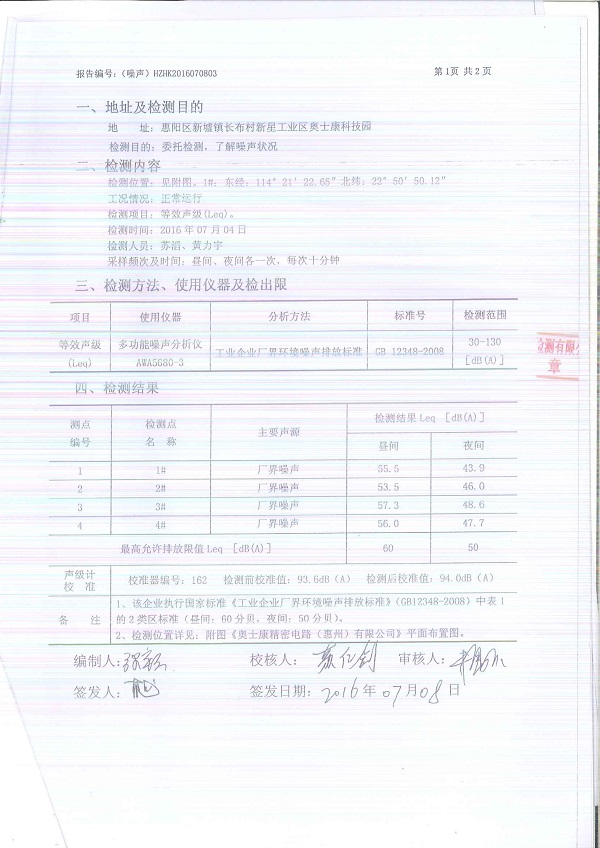 报告编号：（噪声）HZHK2016070803
第1页 共2页
一、地址及检测目的
地 址：惠阳区新墟镇长布村新星工业区奥士康科技园
检测目的：委托检测，了解噪声状况
二、检测内容
检测位置：见附图。1#：东经：114°21′22.65″北纬：22°50′50.12″
工况情况：正常运行
检测项目：等效声级(Leq)。
检测时间：2016年07月04日
检测人员：苏滔、黄力宇
采样频次及时间：昼间、夜间各一次，每次十分钟
三、检测方法、使用仪器及检出限
项目 使用仪器 分析方法 标准号 检测范围
等效声级 多功能噪声分析仪 工业企业厂界环境噪声排放标准 GB 12348-2008 30-130
(Leq) AWA5680-3 [dB(A)]
检测有限公
章
四、检测结果
测点 检测点 主要声源 检测结果 Leq [dB(A)]
编号 名 称 昼间 夜间
1 1# 厂界噪声 55.5 43.9
2 2# 厂界噪声 53.5 46.0
3 3# 厂界噪声 57.3 48.6
4 4# 厂界噪声 56.0 47.7
最高允许排放限值 Leq [dB(A)] 60 50
声级计 校准器编号：162 检测前校准值：93.6dB（A） 检测后校准值：94.0dB（A）
校 准
备 注 1、该企业执行国家标准《工业企业厂界环境噪声排放标准》（GB12348-2008）中表1
的2类区标准（昼间：60分贝，夜间：50分贝）。
2、检测位置详见：附图《奥士康精密电路（惠州）有限公司》平面布置图。
编制人： 校核人： 审核人：
签发人： 签发日期：2016年07月08日